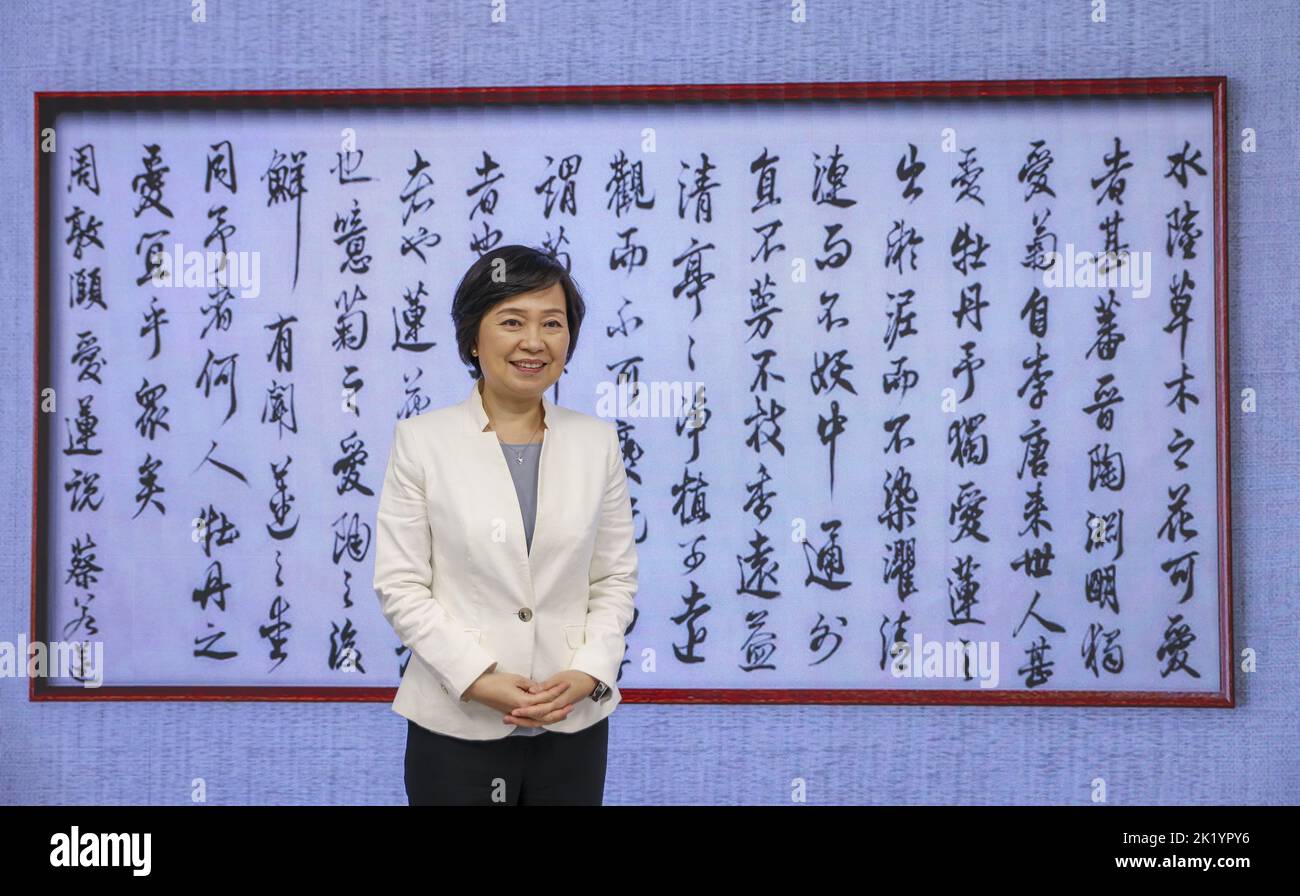 水陸草木之花可愛
者甚蕃晉陶淵明獨
愛菊自李唐來世人甚
愛牡丹予獨愛蓮之
出淤泥而不染濯清
漣而不妖中通外
直不蔓不枝香遠益
清亭亭淨植可遠
觀而不可褻玩
謂菊
者也
者也蓮花
也噫菊之愛陶之後
鮮有聞蓮之愛
同予者何人牡丹之
愛宜乎眾矣
周敦頤愛蓮說 蔡若蓮
alamy
Image ID: 2K1YPY6
www.alamy.com